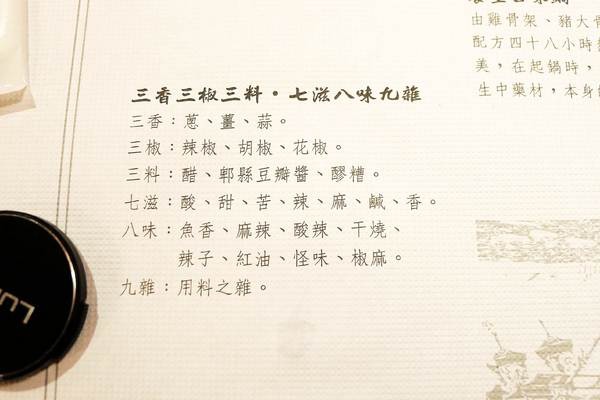 由雞骨架、豬大骨
配方四十八小時
美，在起鍋時，
生中藥材，本身
三香三椒三料・七滋八味九雜
三香：蔥、薑、蒜。
三椒：辣椒、胡椒、花椒。
三料：醋、郫縣豆瓣醬、醪糟。
七滋：酸、甜、苦、辣、麻、鹹、香。
八味：魚香、麻辣、酸辣、干燒、
辣子、紅油、怪味、椒麻。
九雜：用料之雜。